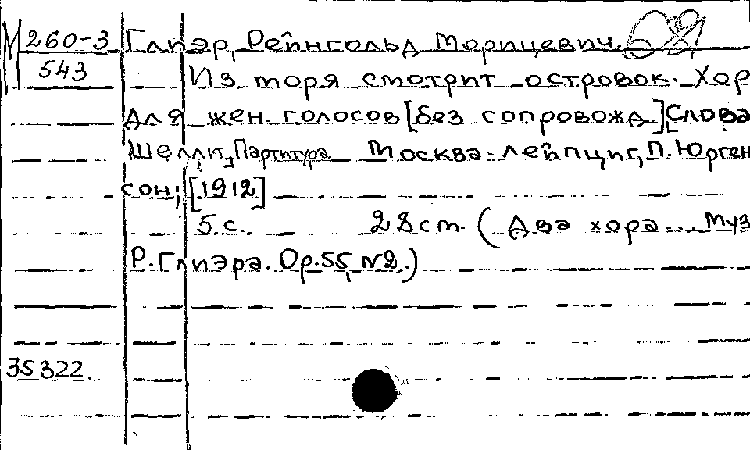 М 260-3 Глиэр, Рейнгольд Морицевич.
543 Из моря смотрит островок. Хор
для жен. голосов [без сопровожд.] Слова
Шелли, Партитура Москва-Лейпциг, П. Юрген
сон, [1912]
5 с. 28 ст. (Два хора... Муз
Р. Глиэра. Ор. 55, №2.)
35322.